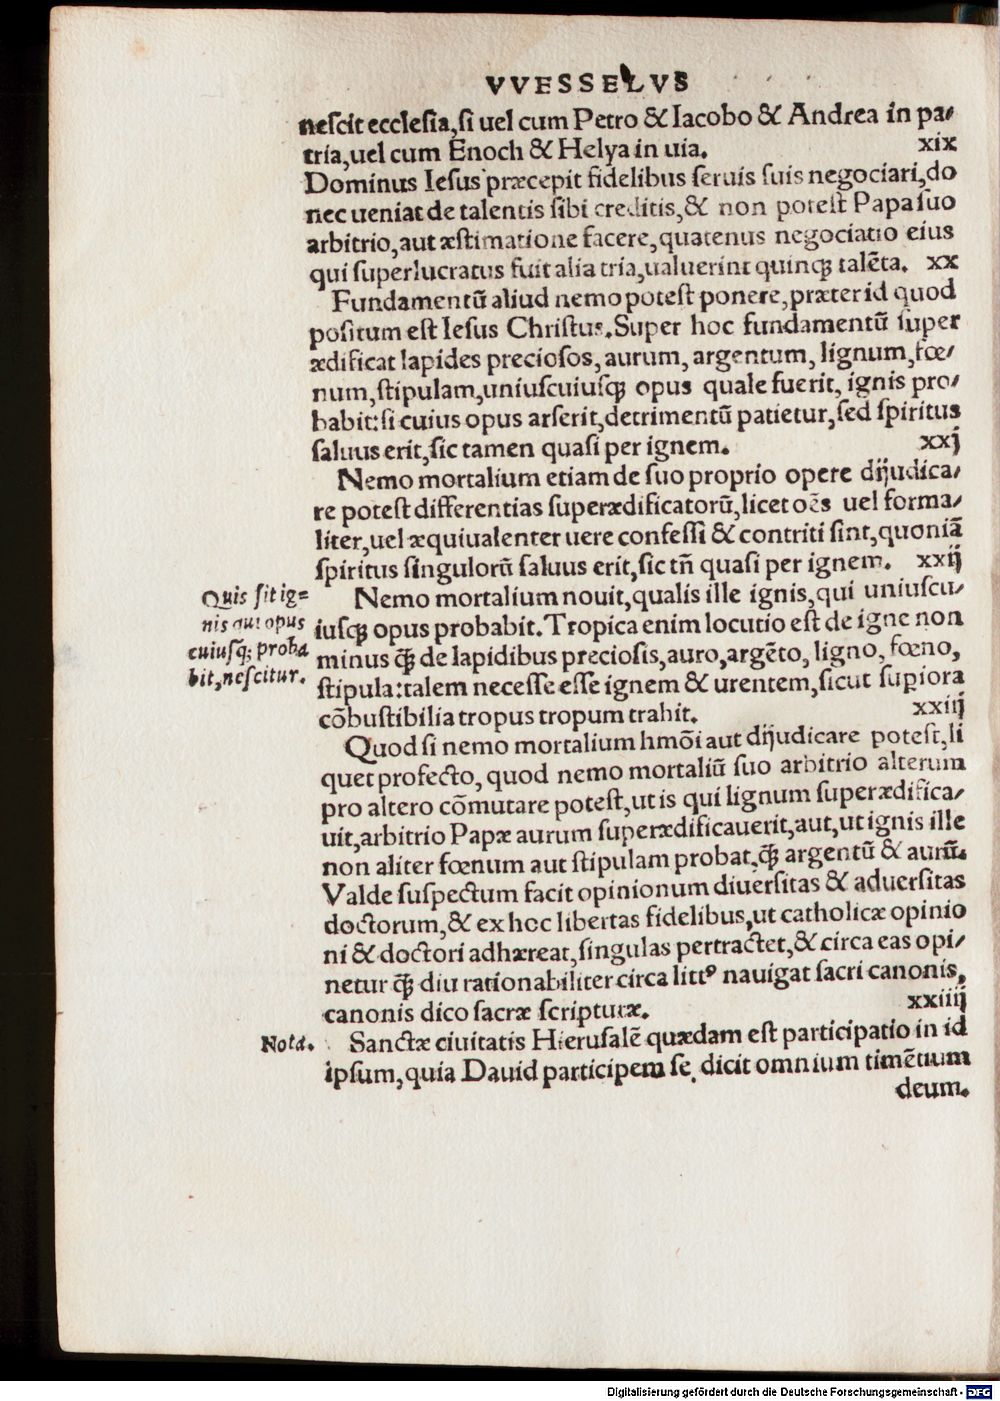 VVESSELVS
nescit ecclesia, si uel cum Petro & Iacobo & Andrea in pa/
tria, uel cum Enoch & Helya in uia. xix
Dominus Iesus præcepit fidelibus seruis suis negociari, do
nec ueniat de talentis sibi creditis, & non potest Papa suo
arbitrio, aut æstimatione facere, quatenus negociatio eius
qui superlucratus fuit alia tria, ualuerint quinqꝫ talẽta. xx
Fundamentũ aliud nemo potest ponere, præter id quod
positum est Iesus Christus. Super hoc fundamentũ super
ædificat lapides preciosos, aurum, argentum, lignum, fœ/
num, stipulam, uniuscuiusqꝫ opus quale fuerit, ignis pro/
babit: si cuius opus arserit, detrimentũ patietur, sed spiritus
saluus erit, sic tamen quasi per ignem. xxj
Nemo mortalium etiam de suo proprio opere dijudica/
re potest differentias superædificatorũ, licet oẽs uel forma/
liter, uel æquiualenter uere confessi & contriti sint, quoniã
spiritus singulorũ saluus erit, sic tñ quasi per ignem. xxij
Quis sit ig=
nis qui opus
cuiusqꝫ proba
bit, nescitur.
Nemo mortalium nouit, qualis ille ignis, qui uniuscu/
iusqꝫ opus probabit. Tropica enim locutio est de igne non
minus q̃ꝫ de lapidibus preciosis, auro, argẽto, ligno, fœno,
stipula: talem necesse esse ignem & urentem, sicut supiora
cõbustibilia tropus tropum trahit. xxiij
Quod si nemo mortalium hmõi aut dijudicare potest, li
quet profecto, quod nemo mortaliũ suo arbitrio alterum
pro altero cõmutare potest, ut is qui lignum superædifica/
uit, arbitrio Papæ aurum superædificauerit, aut, ut ignis ille
non aliter fœnum aut stipulam probat, q̃ꝫ argentũ & aurũ.
Valde suspectum facit opinionum diuersitas & aduersitas
doctorum, & ex hoc libertas fidelibus, ut catholicæ opinio
ni & doctori adhæreat, singulas pertractet, & circa eas opi/
netur q̃ꝫ diu rationabiliter circa littꝰ nauigat sacri canonis,
canonis dico sacræ scripturæ. xxiiij
Nota.
Sanctæ ciuitatis Hierusalẽ quædam est participatio in id
ipsum, quia Dauid participem se, dicit omnium timẽtium
deum.
Digitalisierung gefördert durch die Deutsche Forschungsgemeinschaft - DFG